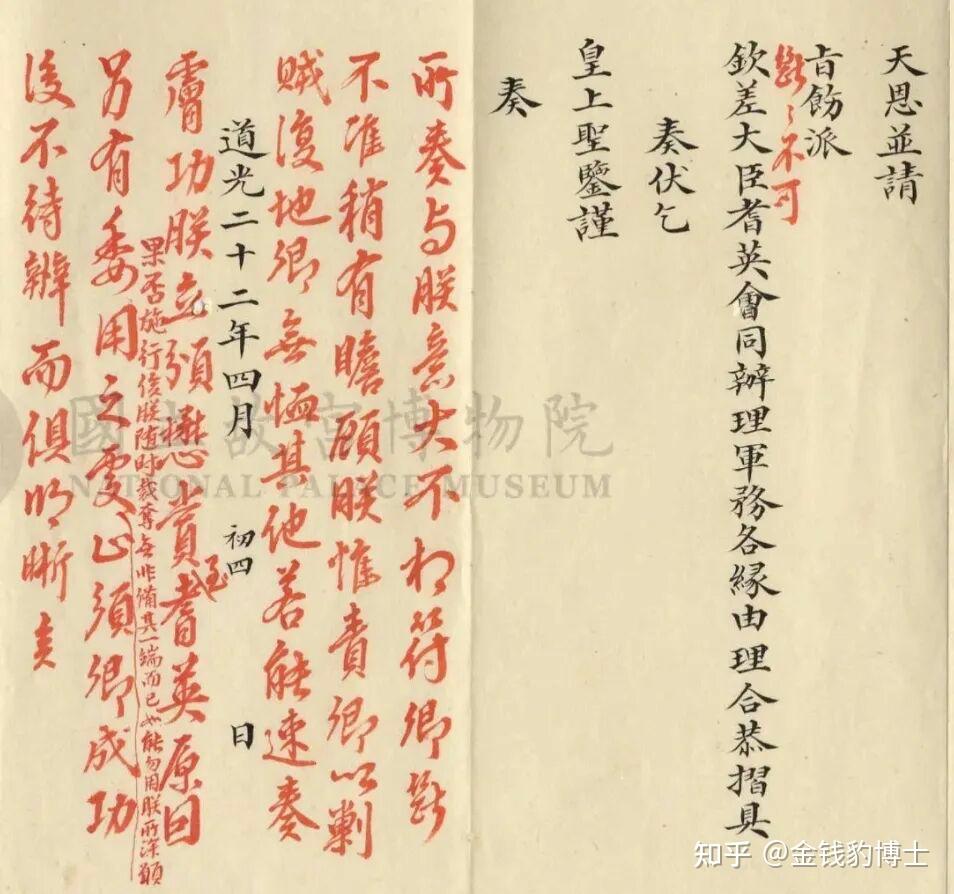 天恩並請
旨飭派
斷斷不可
欽差大臣耆英會同辦理軍務各緣由理合恭摺具
奏伏乞
皇上聖鑒謹
奏
所奏與朕意大不相符卿斷
不准稍有瞻顧朕惟責卿以剿
賊復地卿無恤其他若能速奏
道光二十二年四月初四日
膚功朕立頒懋賞至耆英原因
果否施行俟朕随时裁奪無非備其一端而已如能勿用朕所深願
另有委用之處亦須卿成功
後不待辦而俱明晰矣
國立故宮博物院
NATIONAL PALACE MUSEUM
知乎 @金钱豹博士